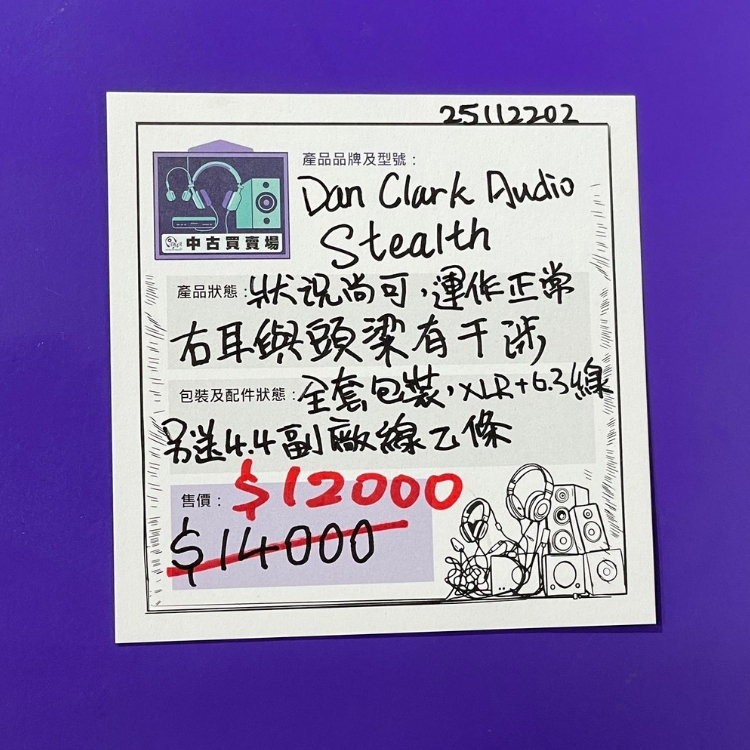 25112202
中古買賣場
產品品牌及型號：
Dan Clark Audio
Stealth
產品狀態：狀況尚可，運作正常
右耳與頭梁有干涉
包裝及配件狀態：全套包裝，XLR+6.3線
另送4.4副廠線乙條
售價：$12000
$14000